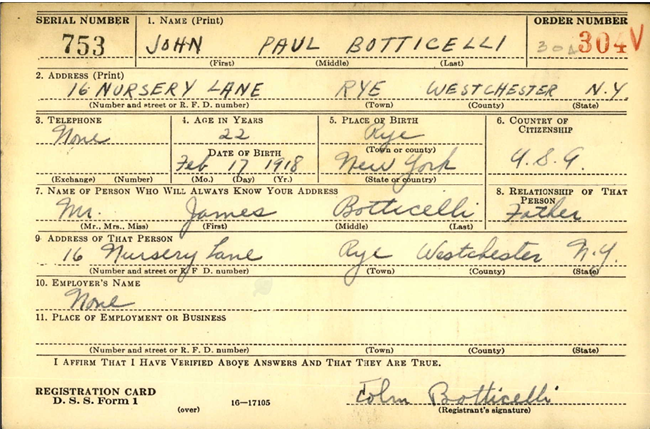 SERIAL NUMBER 1. NAME (Print) ORDER NUMBER
753 JOHN PAUL BOTTICELLI 304 304V
(First) (Middle) (Last)
2. ADDRESS (Print)
16 NURSERY LANE RYE WESTCHESTER N.Y.
(Number and street or R. F. D. number) (Town) (County) (State)
3. TELEPHONE 4. AGE IN YEARS 5. PLACE OF BIRTH 6. COUNTRY OF CITIZENSHIP
None 22 Rye
DATE OF BIRTH (Town or county)
Feb 17 1918 New York U.S.A.
(Exchange) (Number) (Mo.) (Day) (Yr.) (State or country)
7. NAME OF PERSON WHO WILL ALWAYS KNOW YOUR ADDRESS 8. RELATIONSHIP OF THAT PERSON
Mr. James Botticelli Father
(Mr., Mrs., Miss) (First) (Middle) (Last)
9 ADDRESS OF THAT PERSON
16 Nursery Lane Rye Westchester N.Y.
(Number and street or R. F. D. number) (Town) (County) (State)
10. EMPLOYER'S NAME
None
11. PLACE OF EMPLOYMENT OR BUSINESS
(Number and street or R. F. D. number) (Town) (County) (State)
I AFFIRM THAT I HAVE VERIFIED ABOVE ANSWERS AND THAT THEY ARE TRUE.
REGISTRATION CARD
D. S. S. Form 1 (over) 16-17105 John Botticelli
(Registrant's signature)